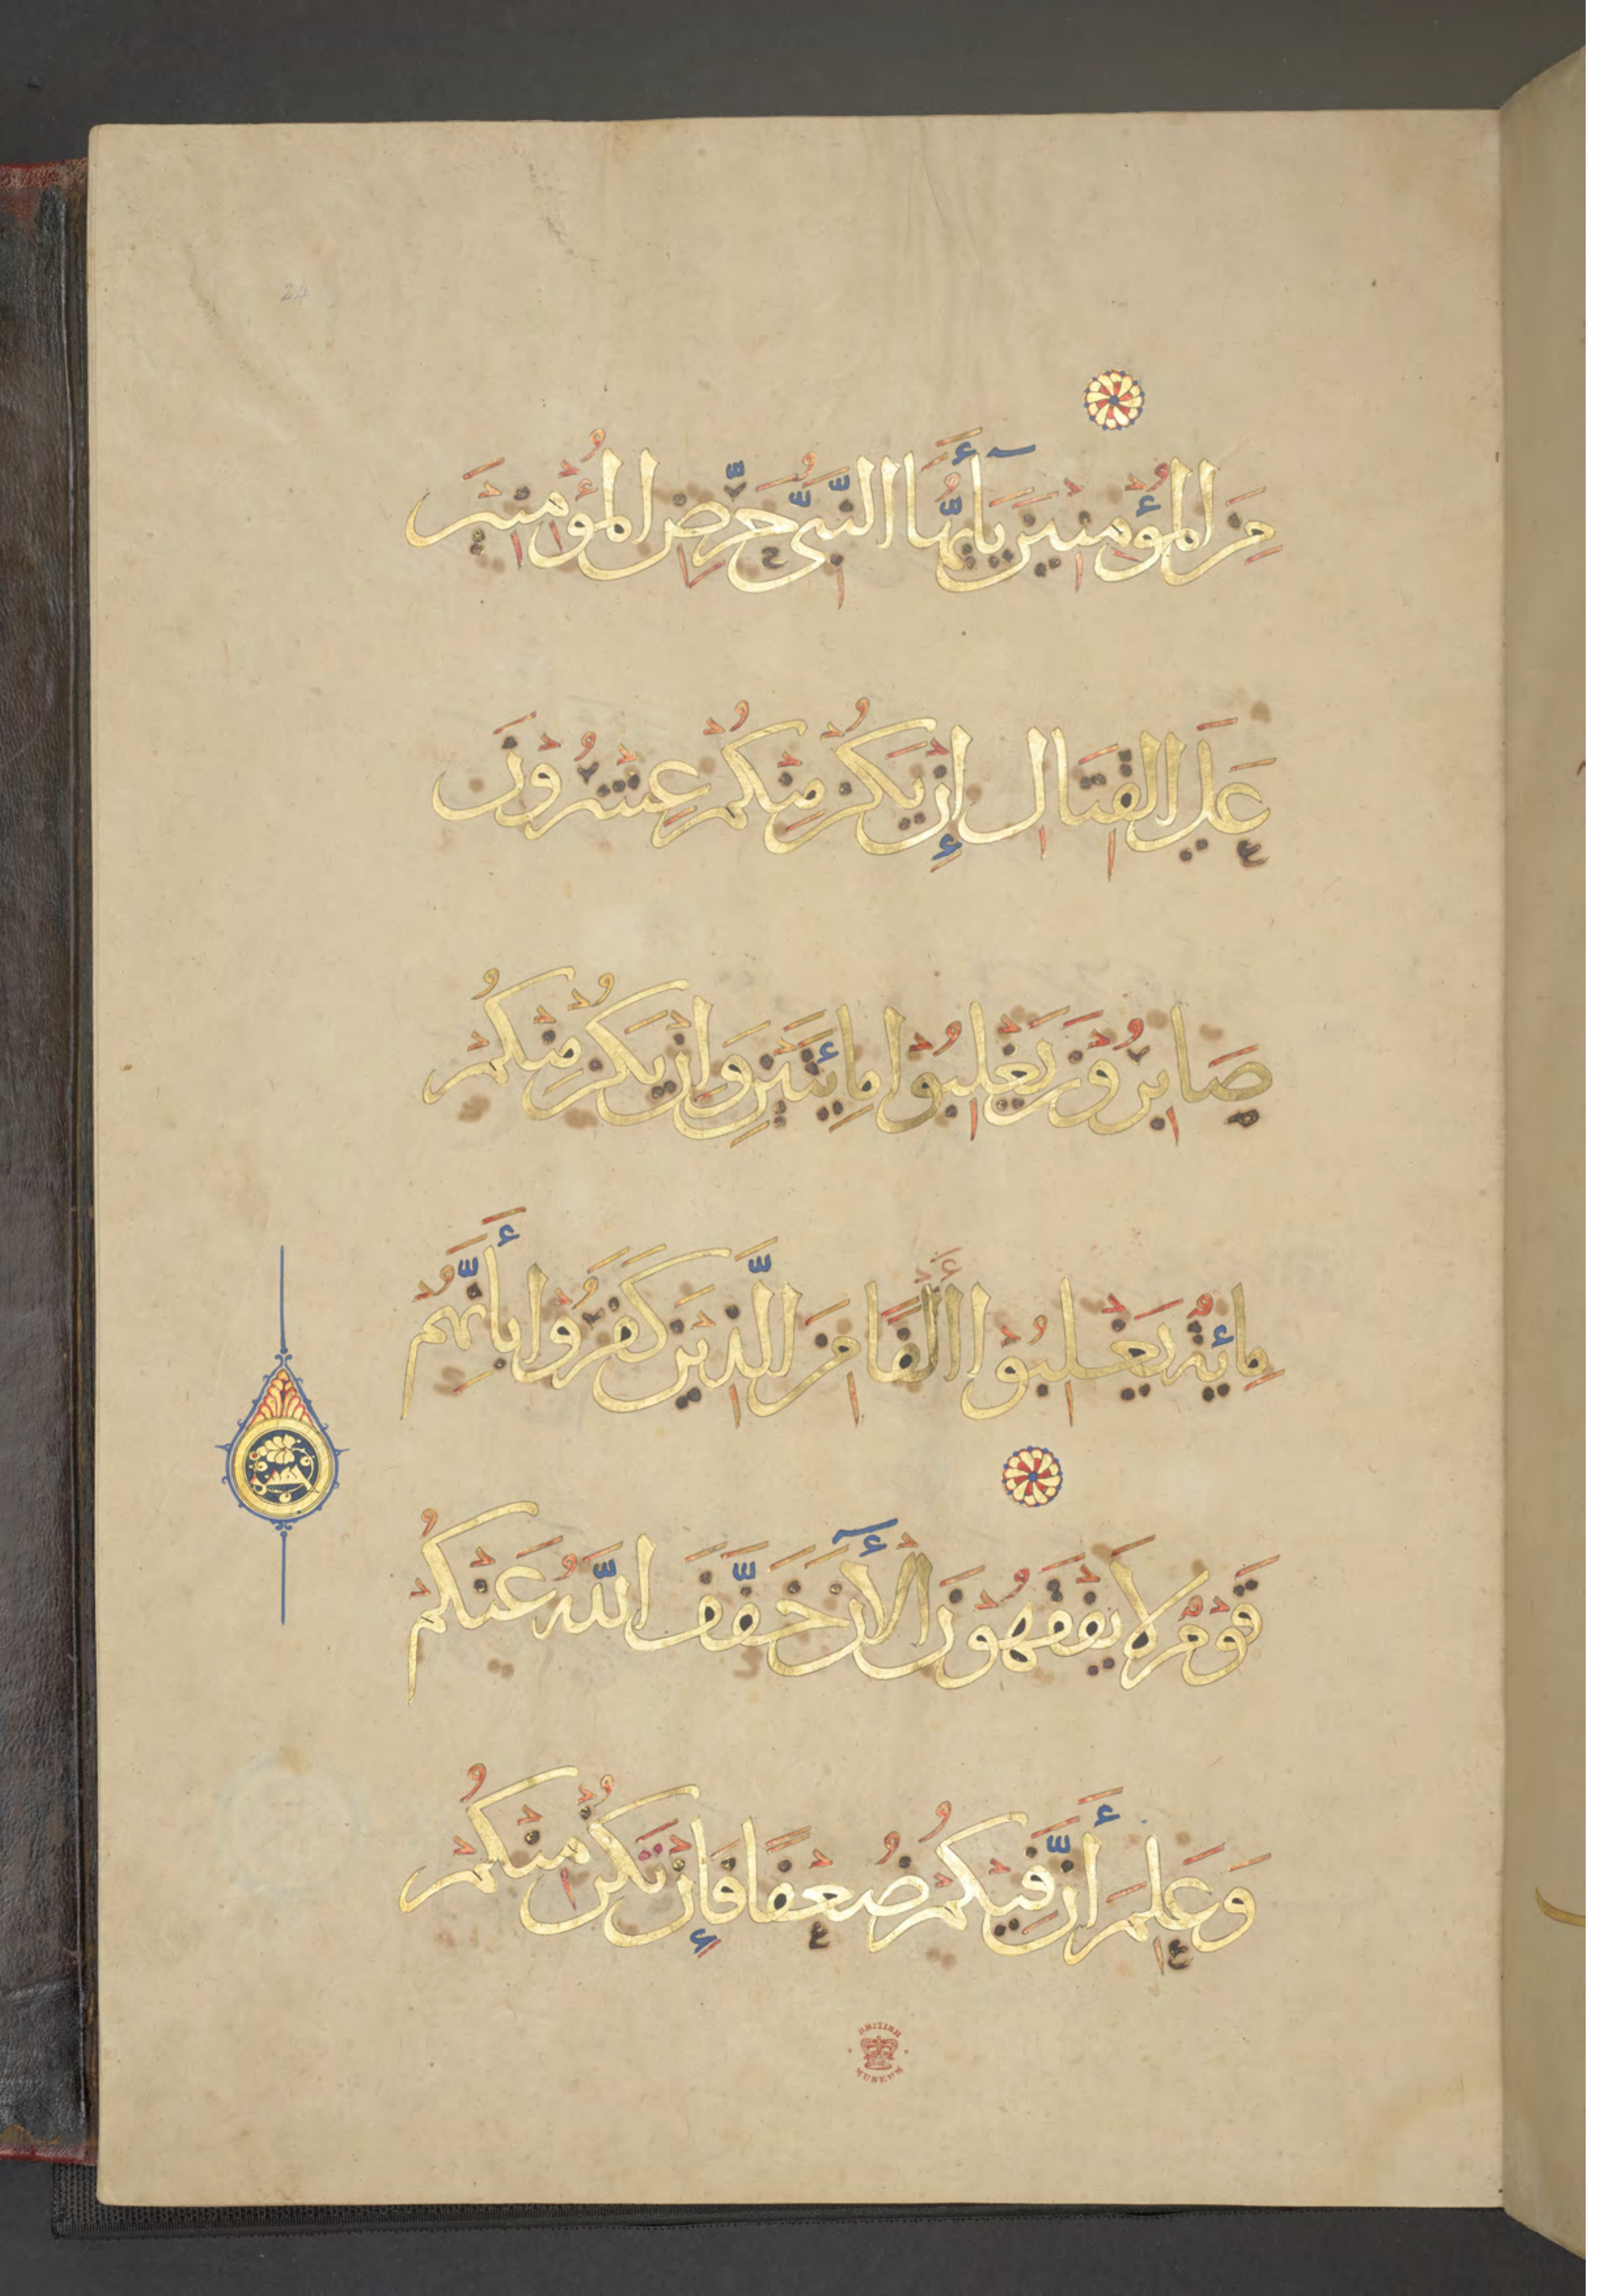 24
مِنَ الْمُؤْمِنِينَ يَآ أَيُّهَا النَّبِيُّ حَرِّضِ الْمُؤْمِنِينَ
عَلَى الْقِتَالِ إِنْ يَكُنْ مِنْكُمْ عِشْرُونَ
صَابِرُونَ يَغْلِبُوا مِائَتَيْنِ وَإِنْ يَكُنْ مِنْكُمْ
مِائَةٌ يَغْلِبُوا أَلْفًا مِنَ الَّذِينَ كَفَرُوا بِأَنَّهُمْ
قَوْمٌ لَا يَفْقَهُونَ الْآنَ خَفَّفَ اللَّهُ عَنْكُمْ
وَعَلِمَ أَنَّ فِيكُمْ ضُعْفًا فَإِنْ تَكُنْ مِنْكُمْ
BRITISH
MUSEUM